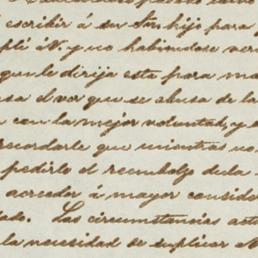 escribir á su Sor. hijo para
plé á V. y no habiendose veri
que le dirija esta para ma
sa el vor que se abusa de la
con la mejor voluntad, y
recordarle que mientras no
pedirle el reembolzo de la
acreedor á mayor conside
ado. Las circumstancias act
la necesidad de suplicar á V